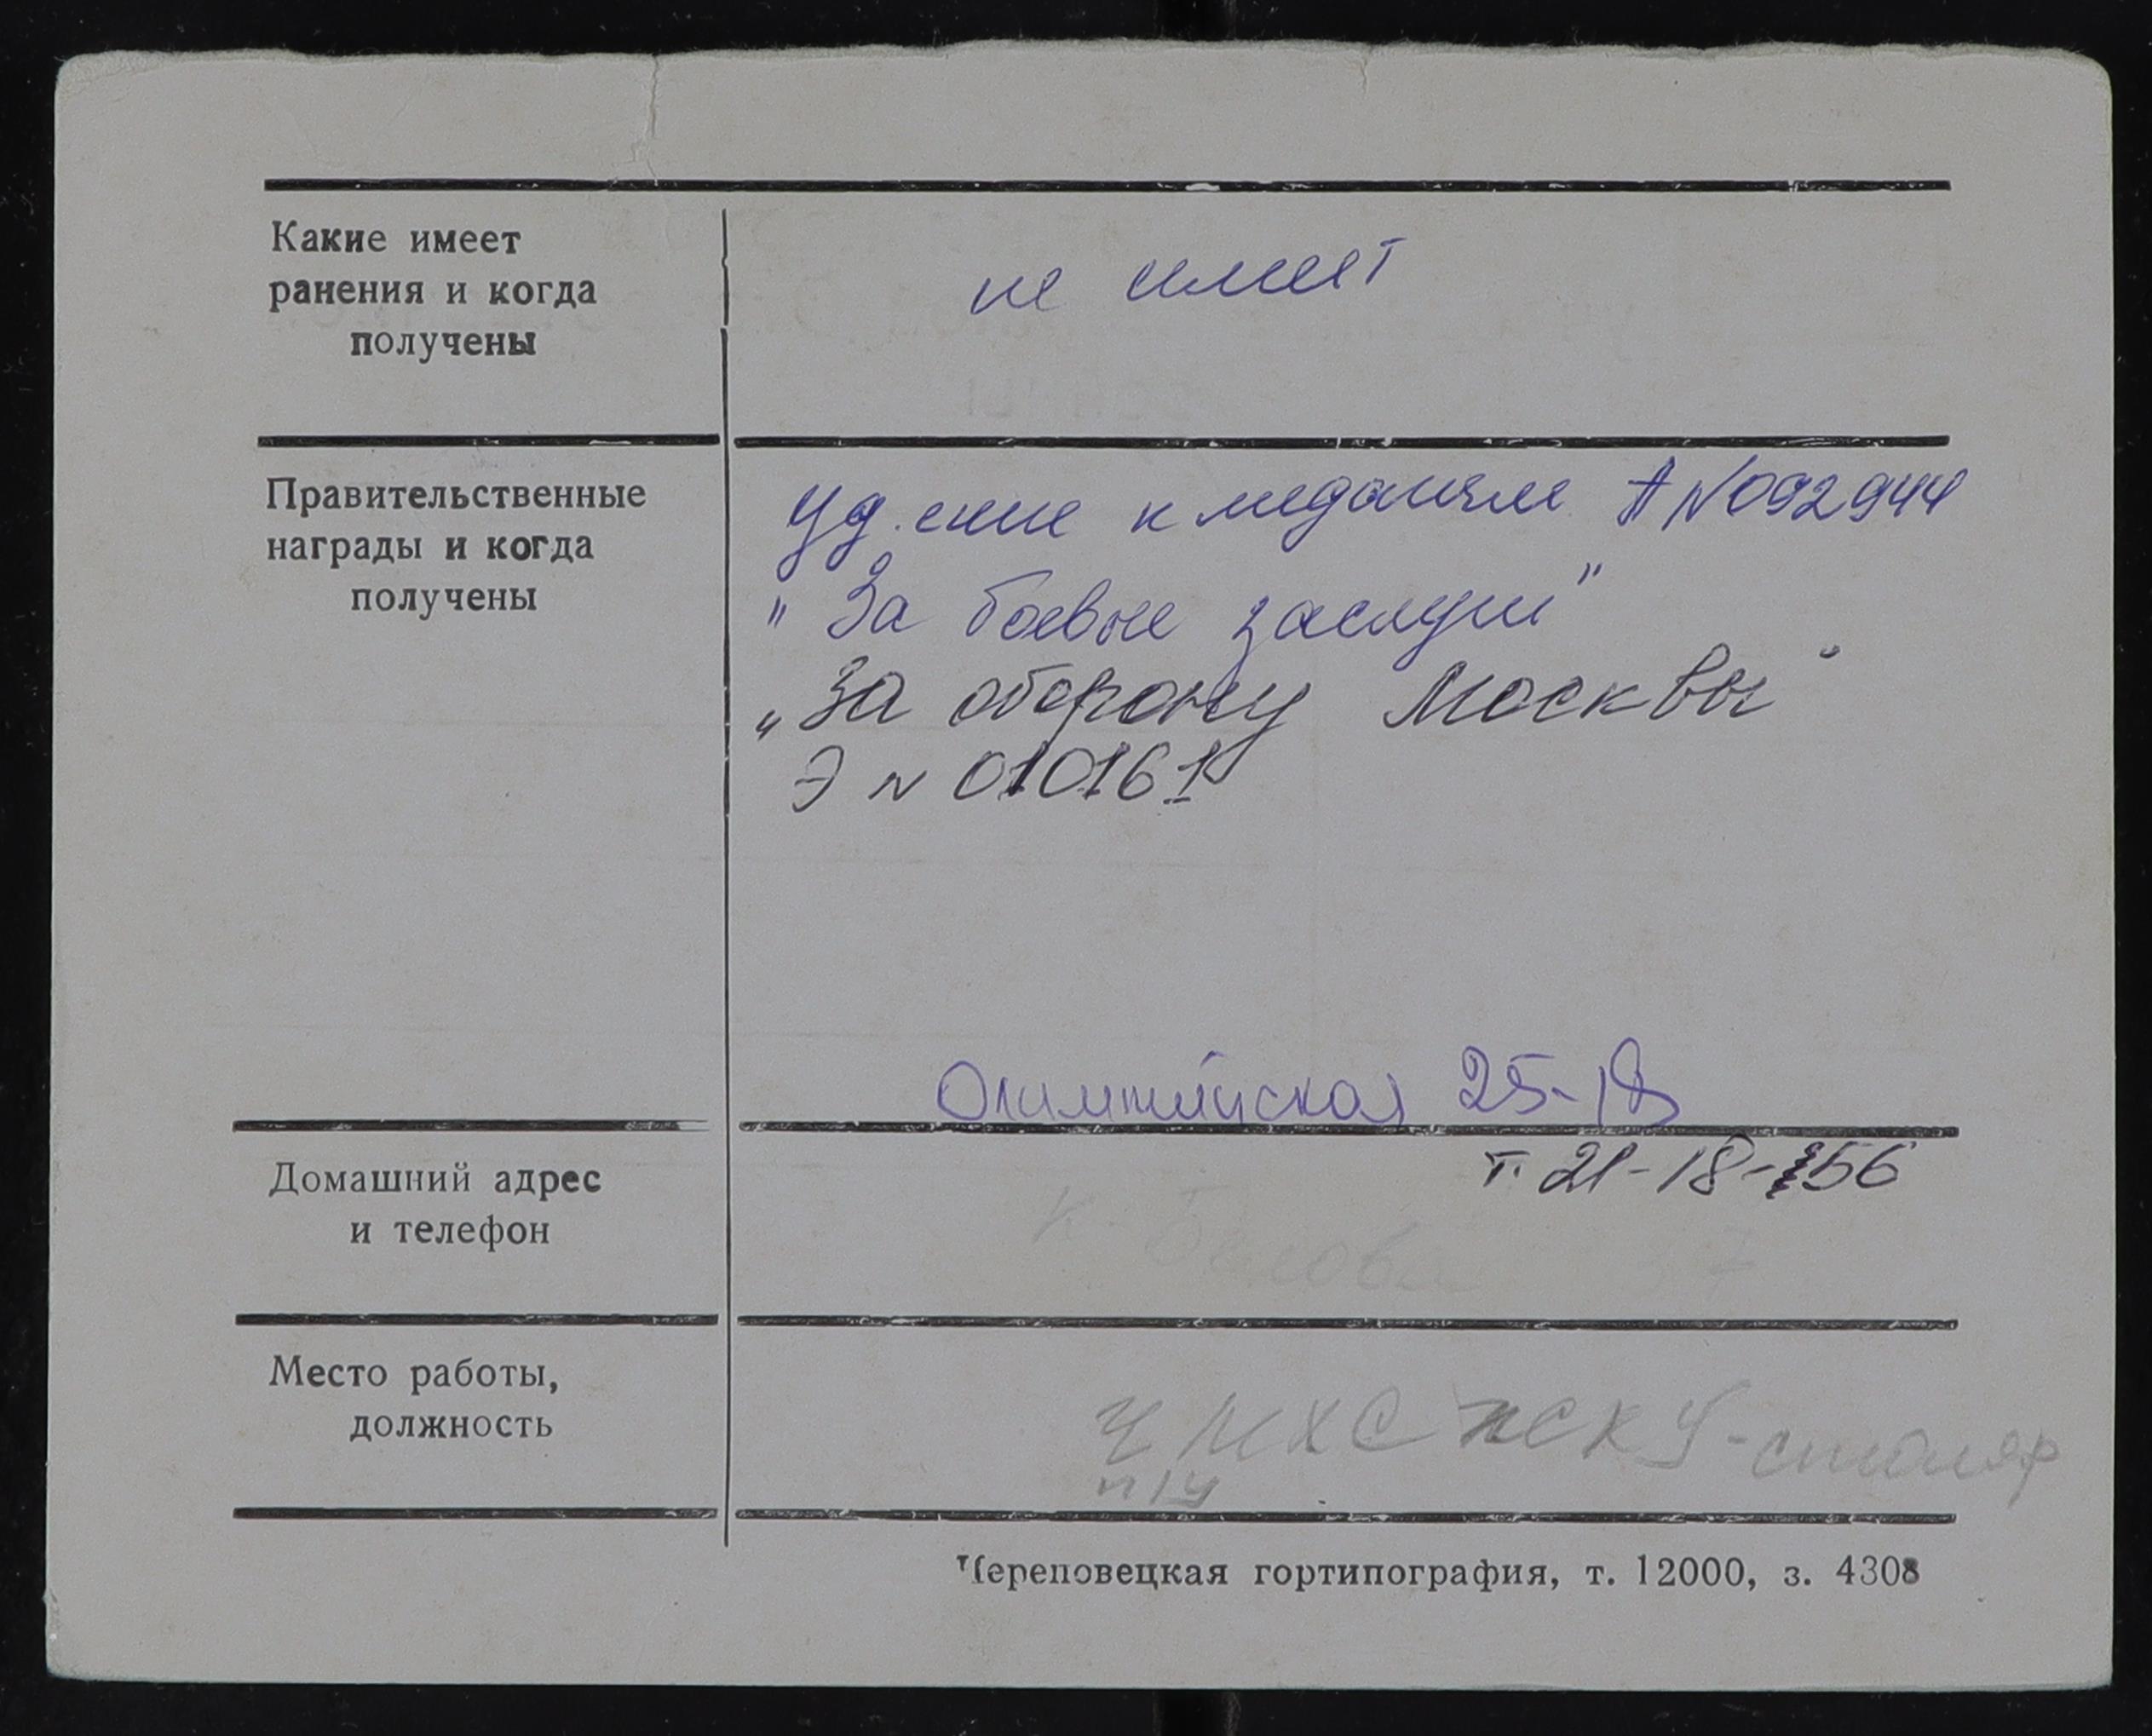 Какие имеет
ранения и когда
получены
не имеет
Правительственные
награды и когда
получены
Уд. ение к медалям А N092944
"За боевые заслуги"
„За оборону Москвы"
Э N 010161
Олимпийская 25-18
Домашний адрес
и телефон
т. 21-18-56
Место работы,
должность
УМХС ПСКУ-столяр
Череповецкая гортипография, т. 12000, з. 4308